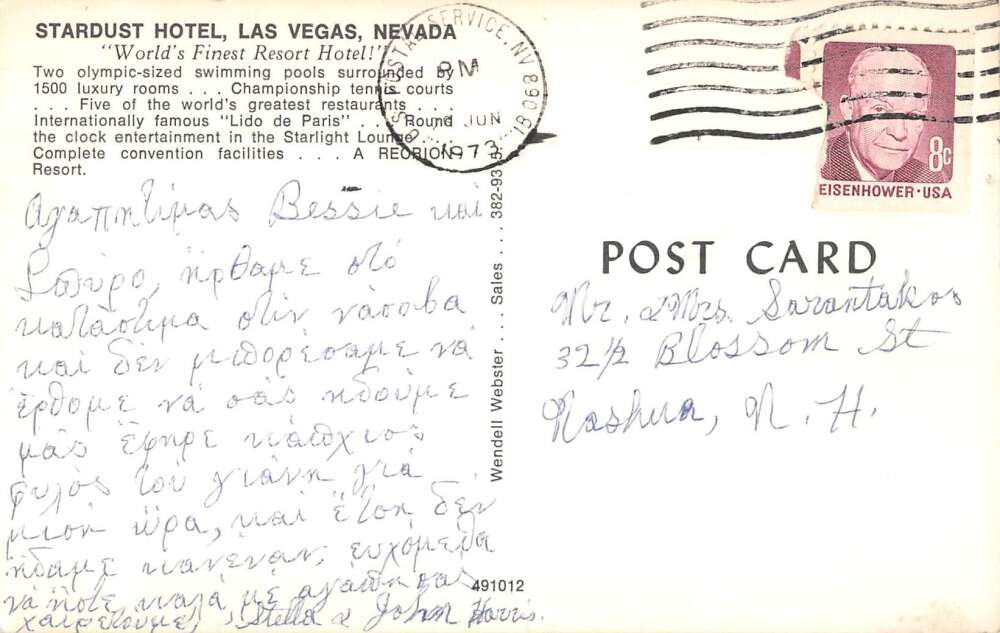 STARDUST HOTEL, LAS VEGAS, NEVADA
"World's Finest Resort Hotel!"
Two olympic-sized swimming pools surrounded by
1500 luxury rooms . . . Championship tennis courts
. . . Five of the world's greatest restaurants . . .
Internationally famous "Lido de Paris" . . . Round
the clock entertainment in the Starlight Lounge
Complete convention facilities . . . A RECRION
Resort.
POSTAL SERVICE, NV 890
PM
JUN
1973
8c
EISENHOWER·USA
Αγαπητιμας Bessie και
Σπύρο, ἤρθαμε στό
κατάστιμα στίν νάσοβα
και δέν μπορέσαμε νά
έρθομε νά σάς ηδούμε
μάς ἔφηρε κάπχιος
φυλος του γιάνη γιά
μιση ὥρα, και ἔτση δέν
ηδαμε κανέναν, ευχόμεθα
νά ἤστε καλά μέ αγάπη σας
χαιρετουμε, Stella & John Harris.
Wendell Webster . . . Sales . . . 382-93
491012
POST CARD
Mr. & Mrs. Sarantakos
32½ Blossom St
Nashua, N. H.